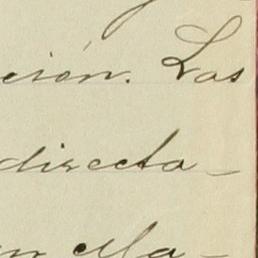 ción. Las
directa-
en ella-